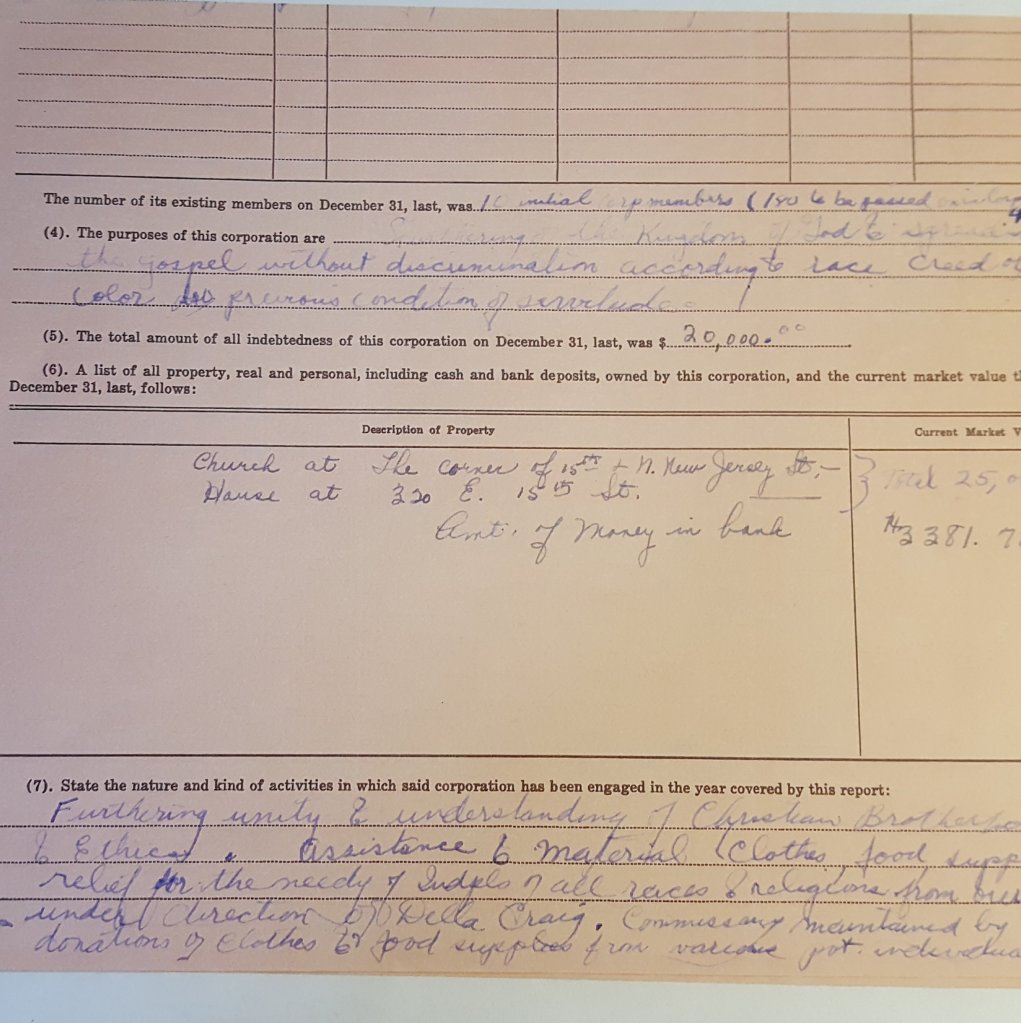 The number of its existing members on December 31, last, was 10 initial members (180 to be passed
(4). The purposes of this corporation are Kingdom of God & spread
the gospel without discrimination according to race Creed or
Color previous condition of servitude.
(5). The total amount of all indebtedness of this corporation on December 31, last, was $ 20,000.00
(6). A list of all property, real and personal, including cash and bank deposits, owned by this corporation, and the current market value
December 31, last, follows:
Description of Property Current Market
Church at The corner of 15th + N. New Jersey St, Total 25,
House at 320 E. 15th St.
Amt. of Money in bank 3381.
(7). State the nature and kind of activities in which said corporation has been engaged in the year covered by this report:
Furthering unity & understanding of Christian
& Ethics. Assistance & Material (Clothes, food,
relief for the needy of Indpls of all races & religions from
under direction of Della Craig. Commissary maintained by
donations of clothes & food supplies from various